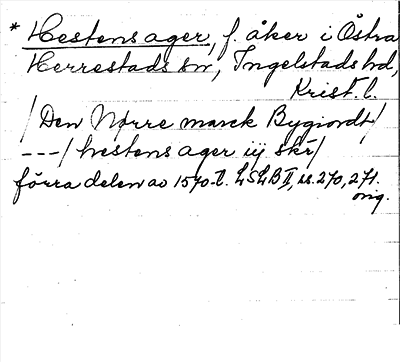 * Hestens ager, f. åker i Östra
Herrestads sn, Ingelstads hd,
Krist. l.
/ Den Nørre marck Bygiordt /
---/ hestens ager iij skr/
förra delen av 1570-t. LSLB II, ss. 270, 271.
orig.